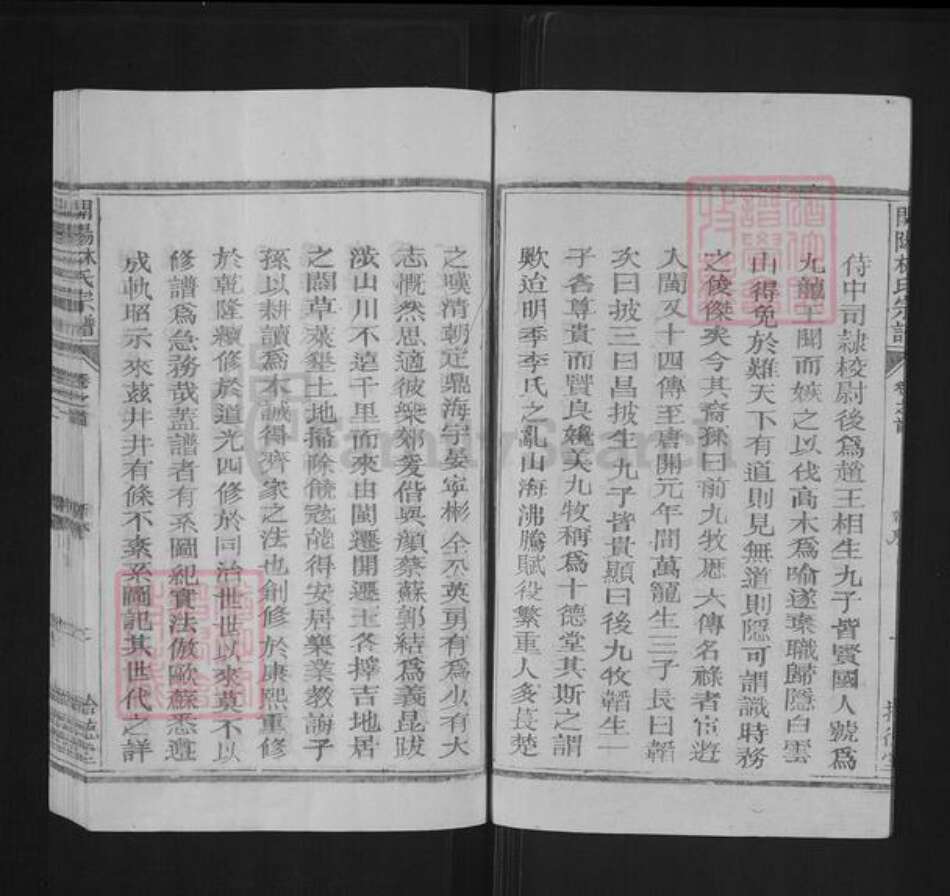 侍中司隸校尉後爲趙王相生九子皆賢國人號爲
九龍王聞而嫉之以伐高木爲喻遂棄職歸隱白雲
山得免於難天下有道則見無道則隱可謂識時務
之俊傑矣今其裔孫曰前九牧厯六傳名祿者宦遊
入閩又十四傳至唐開元年間萬寵生三子長曰韜
次曰披三曰昌披生九子皆貴顯曰後九牧韜生一
子各尊貴而賢良媲美九牧稱爲十德堂其斯之謂
歟迨明季李氏之亂山海沸騰賦役繁重人多萇楚
之嘆清朝定鼎海宇晏寧彬全公英勇有爲少有大
志慨然思適彼樂郊爰偕吳顏蔡蘇郭結爲義昆跋
涉山川不遠千里而來由閩遷開遷玉各擇吉地居
之闢草萊墾土地掃除饒寇能得安居樂業教誨子
孫以耕讀爲本誠得齊家之法也創修於康熙重修
於乾隆續修於道光四修於同治世世以來莫不以
修譜爲急務哉蓋譜者有系圖紀實法倣歐蘇悉遵
成軌昭示來茲井井有條不紊系圖記其世代之詳
開陽林氏宗譜
卷之首
開陽林氏宗譜
卷之首
FamilySearch